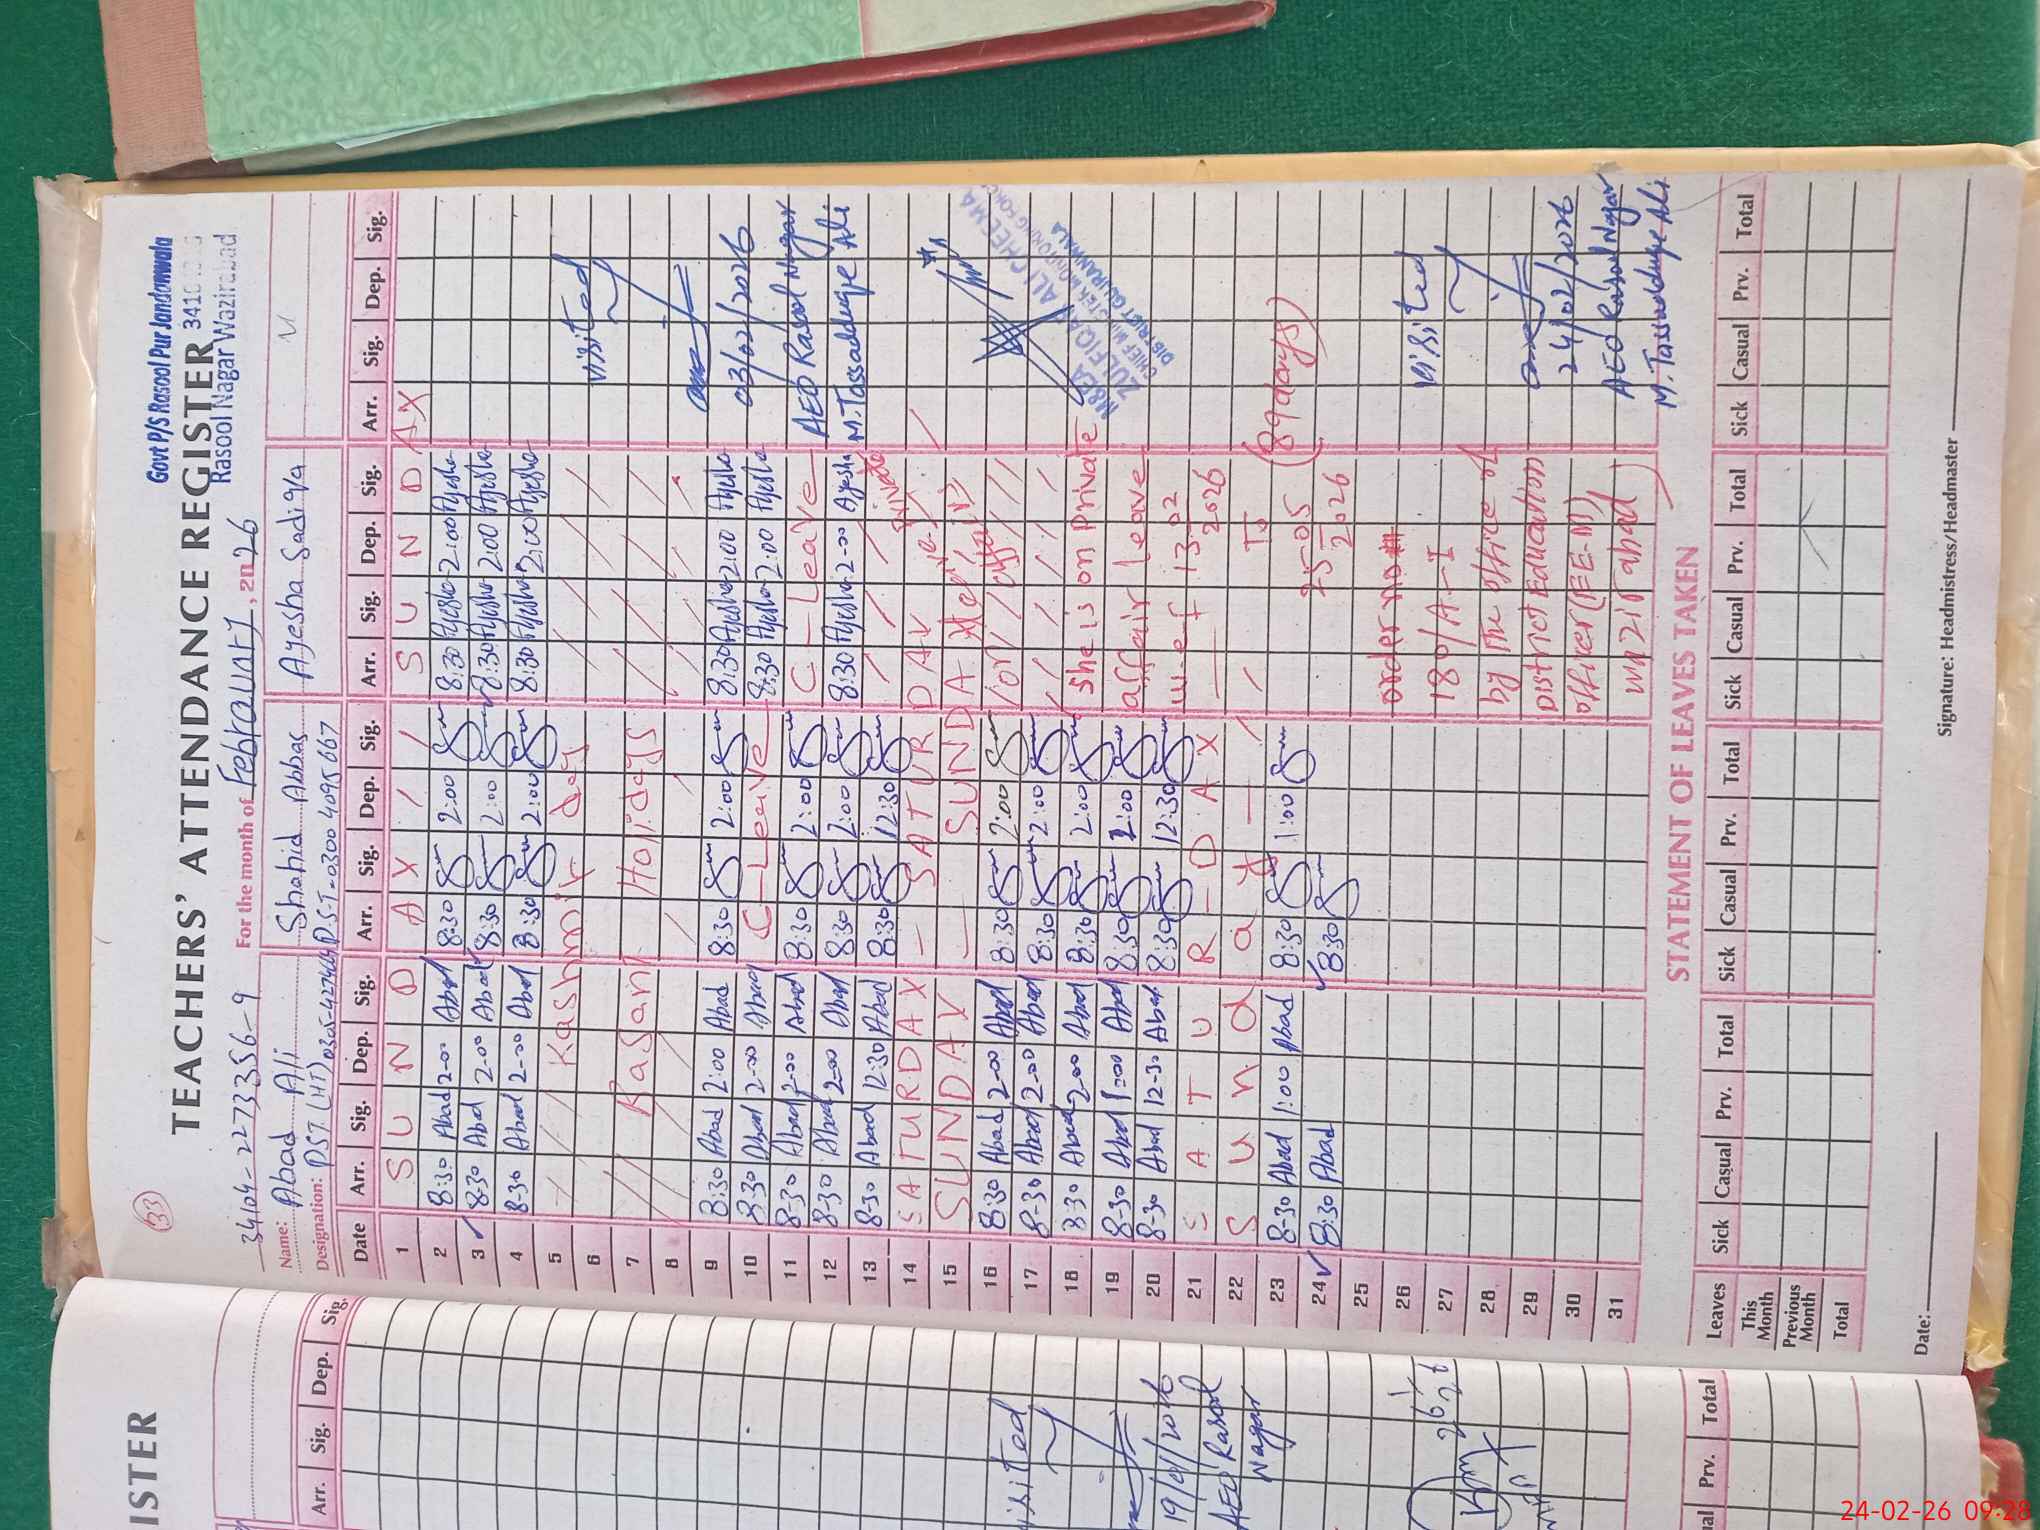 33
Govt P/S Rasool Pur Jandanwala
TEACHERS' ATTENDANCE REGISTER
Rasool Nagar Wazirabad
34104-2273356-9 For the month of February, 2026
Name: Abad Ali Shahid Abbas Ayesha Sadiqa
Designation: PST (HT) PST-0300 4095667
Date Arr. Sig. Dep. Sig. Arr. Sig. Dep. Sig. Arr. Sig. Dep. Sig. Arr. Sig. Dep. Sig.
1 S U N D A X S U N D A X
2 8:30 Abad 2-00 Abad 8:30 2:00 8:30 Ayesha 2:00 Ayesha
3 8:30 Abad 2-00 Abad 8:30 2:00 8:30 Ayesha 2:00 Ayesha
4 8-30 Abad 2-00 Abad 8:30 2:00 8:30 Ayesha 2:00 Ayesha
5 Kashmir day
6 visited
7 Basant Holidays
8
9 8:30 Abad 2:00 Abad 8:30 2:00 8:30 Ayesha 2:00 Ayesha 03/02/2026
10 8:30 Abad 2-00 Abad C-Leave 8:30 Ayesha 2:00 Ayesha
11 8-30 Abad 2-00 Abad 8:30 2:00 C-Leave AEO Rasool Nagar
12 8-30 Abad 2-00 Abad 8:30 2:00 8:30 Ayesha 2-00 Ayesha M.Tassadduqe Ali
13 8-30 Abad 12:30 Abad 8:30 12:30 Private
14 SATURDAX - SATURDAY
15 SUNDAY - SUNDA
16 8:30 Abad 2-00 Abad 8:30 2:00
17 8-30 Abad 2-00 Abad 8:30 2:00
18 8-30 Abad 2-00 Abad 8:30 2:00 she is on Private
19 8-30 Abad 1:00 Abad 8:30 2:00 affair leave
20 8-30 Abad 12-30 Abad 8:30 12:30 w.e.f 13-02 2026
21 S A T U R - D A X
22 S u n d a y To
23 8-30 Abad 1:00 Abad 8:30 1:00 25-05 2026 (89 days)
24 8:30 Abad 8:30
25
26 order no visited
27 180/A-I
28 by The office of
29 District Education
30 officer (EE-M) 24/02/2026
31 wazirabad AEO Rasool Nagar
M.Tassadduqe Ali
ZULFIQAR ALI CHEEMA
DISTRICT GUJRANWALA
STATEMENT OF LEAVES TAKEN
Leaves Sick Casual Prv. Total Sick Casual Prv. Total Sick Casual Prv. Total Sick Casual Prv. Total
This Month
Previous Month
Total
Date: Signature: Headmistress/Headmaster
ISTER
Arr. Sig. Dep. Sig.
19/01/2026
AEO Rasool
Nagar
Prv. Total
24-02-26 09:28